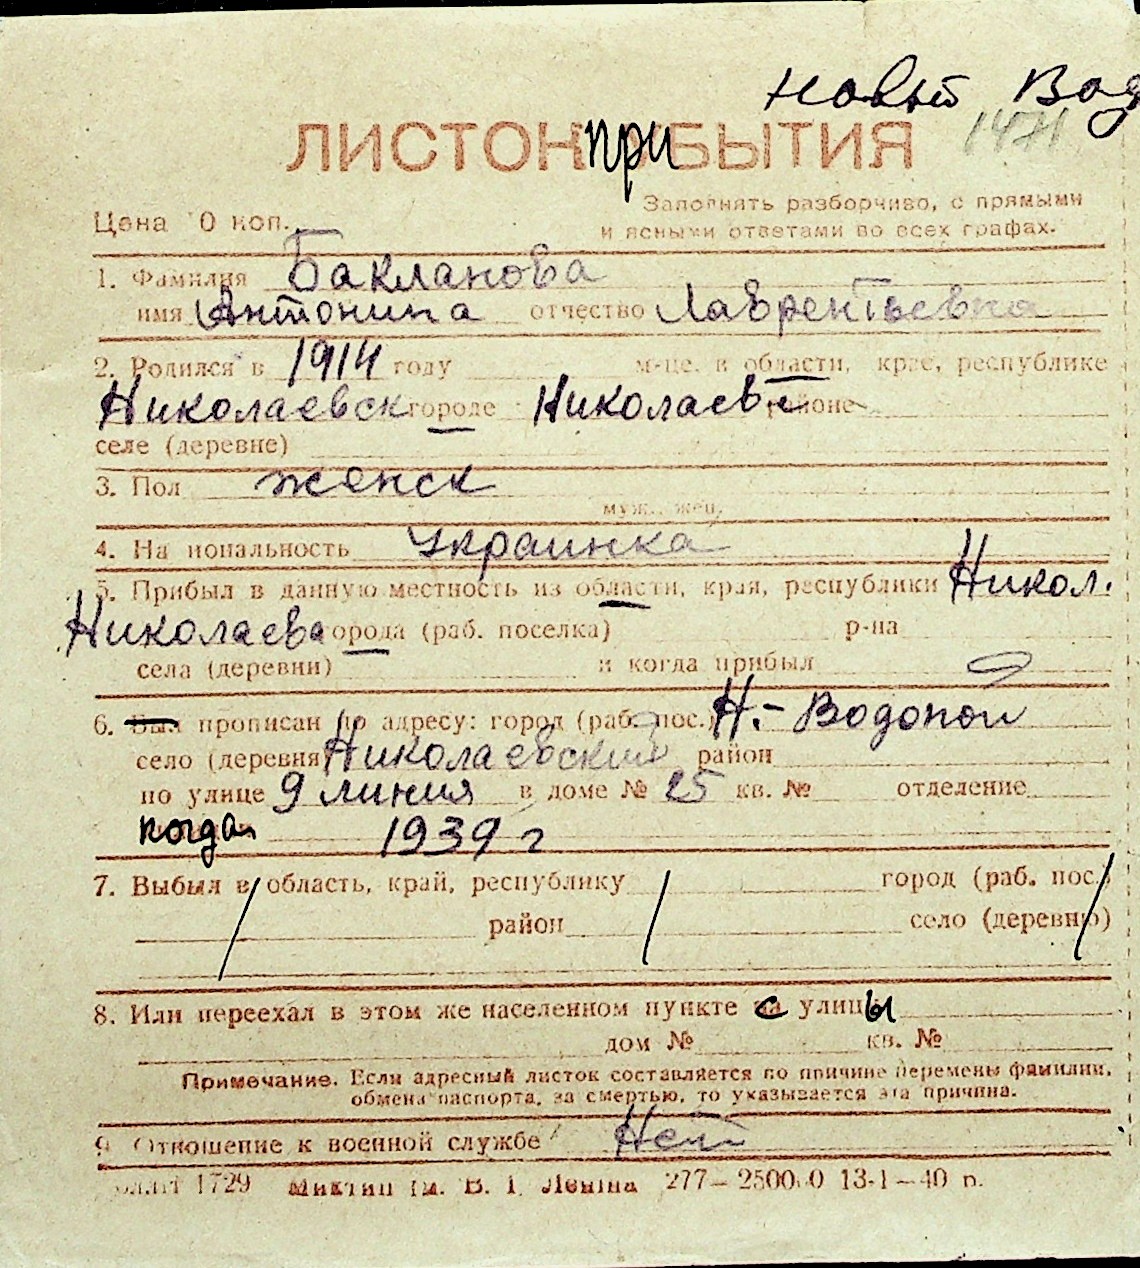 Новый Вод
1471
ЛИСТОК при БЫТИЯ
Цена 0 коп.
Заполнять разборчиво, с прямыми
и ясными ответами во всех графах.
1. Фамилия Бакланова
имя Антонина отчество Лаврентьевна
2. Родился в 1914 году м-це, в области, крае, республике
Николаевск городе Николаев районе
селе (деревне)
3. Пол женск
муж., жен.
4. На иональность Украинка
5. Прибыл в данную местность из области, края, республики Никол.
Николаева города (раб. поселка) р-на
села (деревни) и когда прибыл
6. Был прописан по адресу: город (раб. пос.) Н.-Водопой
село (деревня) Николаевский район
по улице 9 линия в доме № 25 кв. № отделение
когда 1939 г
7. Выбыл в область, край, республику город (раб. пос.)
район село (деревню)
8. Или переехал в этом же населенном пункте с улицы
дом № кв. №
Примечание. Если адресный листок составляется по причине перемены фамилии,
обмена паспорта, за смертью, то указывается эта причина.
9 Отношение к военной службе Нет
1729 Миктип ім. В. І. Леніна 277— 13-1—40 р.